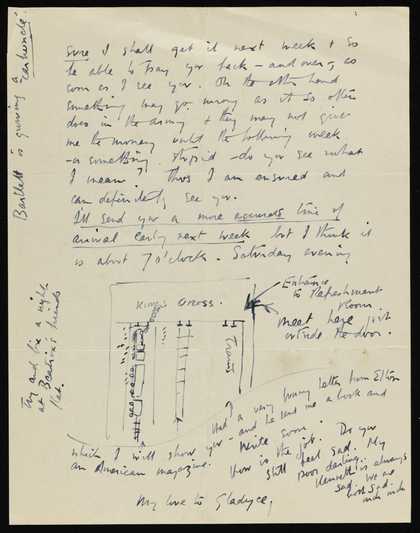 sure I shall get it next week & so
be able to pay you back – and over, as
soon as I see you. On the other hand
something may go wrong as it so often
does in the army & they may not give
me the money until the following week
– or something stupid – do you see what
I mean? Thus I am ensured and
can definitely see you.
I'll send you a more accurate time of
arrival early next week but I think it
is about 7 o'clock. Saturday evening
KING'S CROSS.
Trains
Entrance
to Refreshment
Room
meet here just
outside the door.
Had a very funny letter from Elton
which I will show you – and he sent me a book and
an American magazine.
Write soon.
How is the job. Do you
still feel sad. My
poor darling.
Kenneth is always
sad. We are
both sad.
My love to Gladyce,
Try and fix a night
at Beatrice's friends
flat.
Bartlett is growing a
carbuncle.